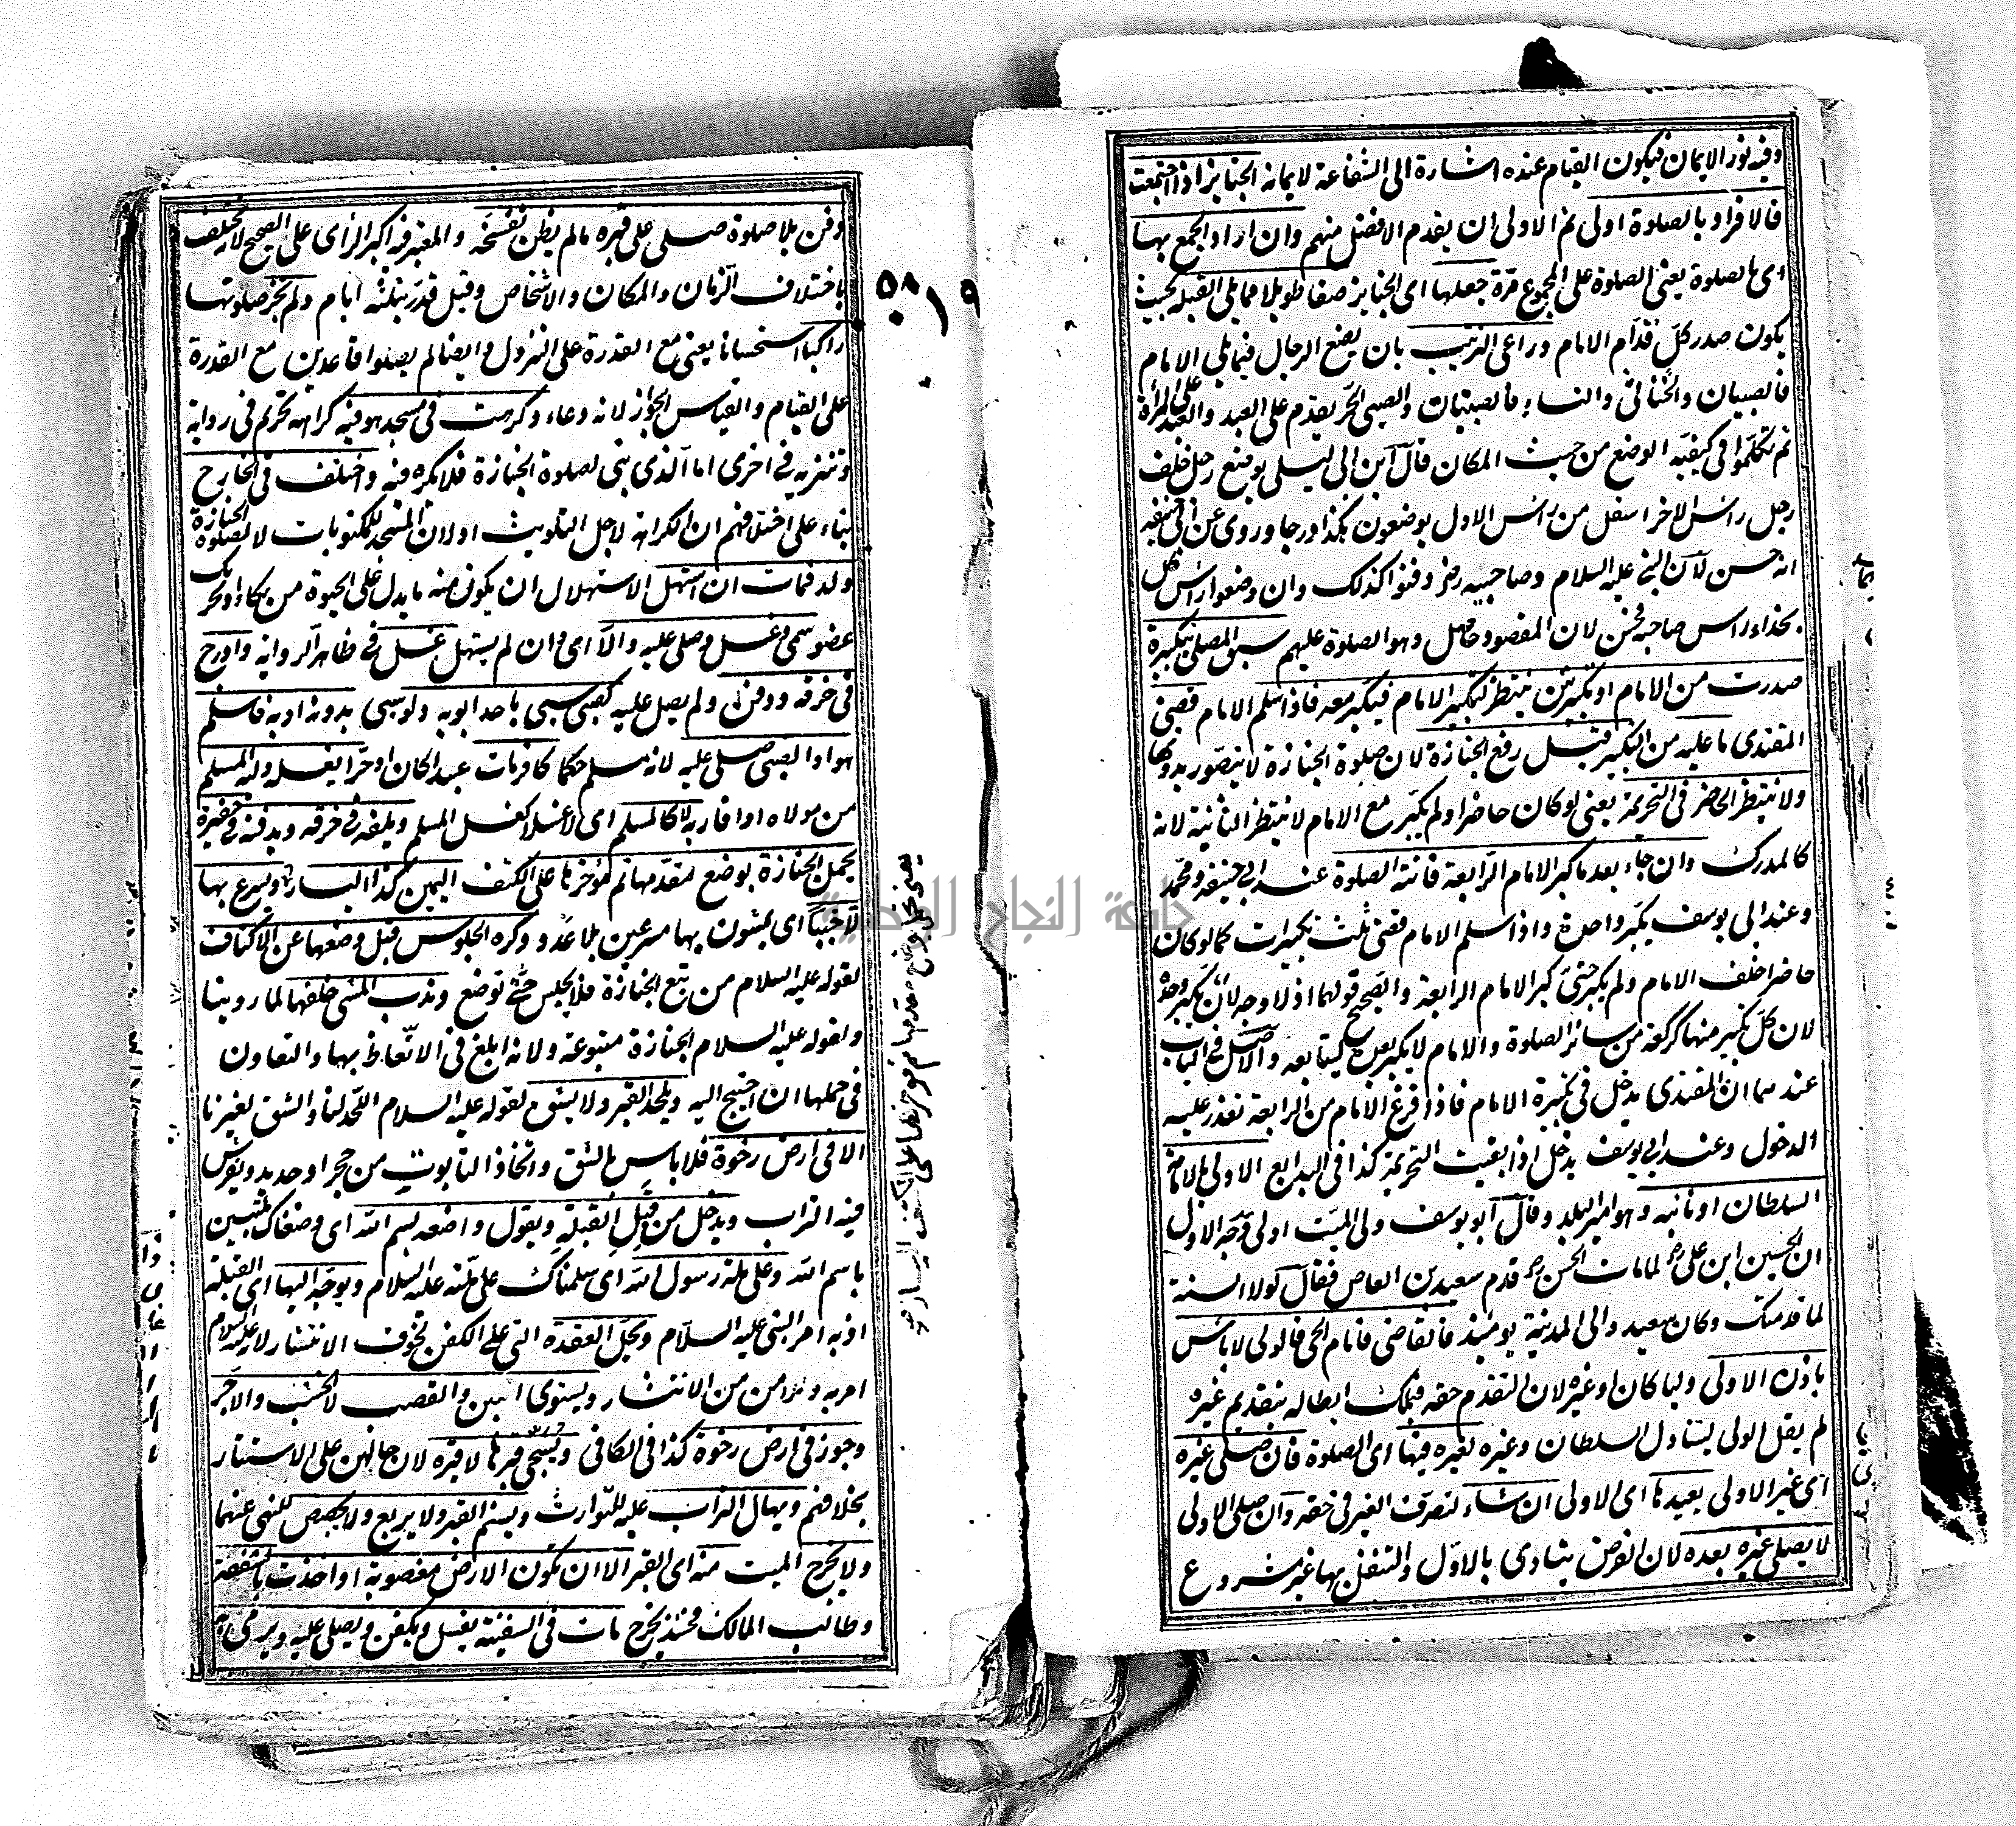 وفيه نور الايمان فيكون القيام عنده اشارة الى الشفاعة لايمانه الجنايز اذا اجتمعت
فالافراد بالصلوة اولى ثم الاولى ان يقدم الافضل منهم وان اراد الجمع بها
اى بالصلوة يعنى الصلوة على المجموع مرة جعلها اى الجنايز صفا طويلا مما يلى القبلة بحيث
يكون صدر كل قدام الامام وراعى الترتيب بان يضع الرجال فيما يلى الامام
فالصبيان والخناثى والنساء فالصبيات والصبى الحر يقدم على العبد والعبد على المرأة
ثم تكلموا فى كيفية الوضع من حيث المكان قال ابن ابى ليلى يوضع رجل خلف
رجل راس الاخر اسفل من راس الاول يوضعون هكذا درجا وروى عن ابى حنيفة
انه حسن لان النبى عليه السلام وصاحبيه رضو دفنوا كذلك وان وضعوا راس كل
بحذاء راس صاحبه فحسن لان المقصود حاصل وهو الصلوة عليهم سبق المصلى بتكبيرة
صدرت من الامام او بتكبيرتين ينتظر ليكبر الامام فيكبر معه فاذا سلم الامام قضى
المقتدى ما عليه من التكبير قبل رفع الجنازة لان صلوة الجنازة لا يتصور بدونها
ولا ينتظر الحاضر فى التحريمة يعنى لو كان حاضرا ولم يكبر مع الامام لا ينتظر الثانية لانه
كالمدرك وان جاء بعد ما كبر الامام الرابعة فاتته الصلوة عند ابى حنيفة ومحمد
وعند ابى يوسف يكبر واحدة واذا سلم الامام قضى ثلث تكبيرات كما لو كان
حاضرا خلف الامام ولم يكبر حتى كبر الامام الرابعة والصحيح قولهما اذ لا وجه لان يكبر وحده
لان كل تكبير منها كركعة من سائر الصلوة والامام لا يكبر بعده ليتابعه والاصل فى الباب
عندهما ان المقتدى يدخل فى تكبيرة الامام فاذا فرغ الامام من الرابعة تعذر عليه
الدخول وعند ابى يوسف يدخل اذا بقيت التحريمة كذا فى البدايع الاولى بالامامة
السلطان او نائبه وهو امير البلد وقال ابو يوسف ولى الميت اولى وجه الاول
ان الحسين ابن على لما مات الحسن قدم سعيد بن العاص فقال لولا السنة
لما قدمتك وكان سعيد والى المدينة يومئذ فالقاضى فامام الحى فالولى لا باس
باذن الاولى وليا كان او غيره لان التقدم حقه فيملك ابطاله بتقديم غيره
لم يقل الولى ليتناول السلطان وغيره لغيره فيها اى الصلوة فان صلى غيره
اى غير الاولى يعيدها اى الاولى ان شاء لتصرف الغير فى حقه وان صلى الاولى
لا يصلى غيره بعده لان الفرض يتادى بالاول والتنفل بها غير مشروع
دفن بلا صلوة صلى على قبره ما لم يظن تفسخه والمعتبر فيه اكبر الراى على الصحيح لانه يختلف
باختلاف الزمان والمكان والاشخاص وقيل قدر بثلثة ايام ولم يجز صلوتها
راكبا استحسانا يعنى مع القدرة على النزول وايضا لم يصلوا قاعدين مع القدرة
على القيام والقياس الجواز لانه دعاء وكرهت فى مسجد هو فيه كراهة تحريم فى رواية
وتنزيه فى اخرى اما الذى بنى لصلوة الجنازة فلا يكره فيه واختلف فى الخارج
بناء على اختلافهم ان الكراهة لاجل التلويث او لان المسجد للمكتوبات لا لصلوة الجنازة
ولد فمات ان استهل الاستهلال ان يكون منه ما يدل على الحيوة من بكاء او تحريك
عضو سمى وغسل وصلى عليه والا اى وان لم يستهل غسل فى ظاهر الرواية وادرج
فى خرقة ودفن ولم يصل عليه كصبى سبى باحد ابويه ولو سبى بدونه او به فاسلم
هو او الصبى صلى عليه لانه مسلم حكما كافر مات عبدا كان او حرا يغسله وليه المسلم
من مولاه او اقاربه لا كالمسلم اى لا غسلا كغسل المسلم ويلفه فى خرقة ويدفنه فى حفيرة
يحمل الجنازة بوضع مقدمها ثم مؤخرها على الكتف اليمين كذا اليسار ويسرع بها
لا خببا اى يمشون بها مسرعين بلا عدو وكره الجلوس قبل وضعها عن الاكتاف
لقوله عليه السلام من تبع الجنازة فلا يجلس حتى توضع وندب المشى خلفها لما روينا
ولقوله عليه السلام الجنازة متبوعة ولانه ابلغ فى الاتعاظ بها والتعاون
فى حملها ان احتيج اليه ويلحد القبر ولا يشق لقوله عليه السلام اللحد لنا والشق لغيرنا
الا فى ارض رخوة فلا باس بالشق واتخاذ التابوت من حجر او حديد ويفرش
فيه التراب ويدخل من قبل القبلة ويقول واضعه بسم الله اى وضعناك متلبسين
باسم الله وعلى ملة رسول الله اى سلمناك على ملته عليه السلام ويوجه اليها اى القبلة
اذ به امر النبى عليه السلام ويحل العقدة التى على الكفن لخوف الانتشار لانه عليه السلام
امر به وللامن من الانتشار ويسوى اللبن والقصب لا الخشب والآجر
وجوز فى ارض رخوة كذا فى الكافى ويسجى قبرها لا قبره لان حالهن على الاستتار
بخلافهم ويهال التراب عليه للتوارث ويسنم القبر ولا يربع ولا يجصص للنهى عنهما
ولا يخرج الميت منه اى القبر الا ان يكون الارض مغصوبة او اخذت بالشفعة
وطالب المالك فحينئذ يخرج مات فى السفينة يغسل ويكفن ويصلى عليه ويرمى
يعنى تحمل بوضع مقدمها ثم مؤخرها على الكتف اليسار
جامعة النجاح الوطنية